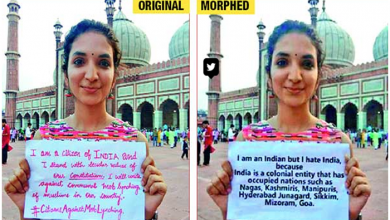 ORIGINAL
I am a citizen of INDIA and
I stand with secular values of
our Constitution. I will write
against Communal Mob Lynching
of muslims in our country.
#CitizensAgainstMobLynching
MORPHED
I am an Indian but I hate India,
because
India is a colonial entity that has
occupied nations such as
Nagas, Kashmiris, Manipuris,
Hyderabad Junagard, Sikkim,
Mizoram, Goa.